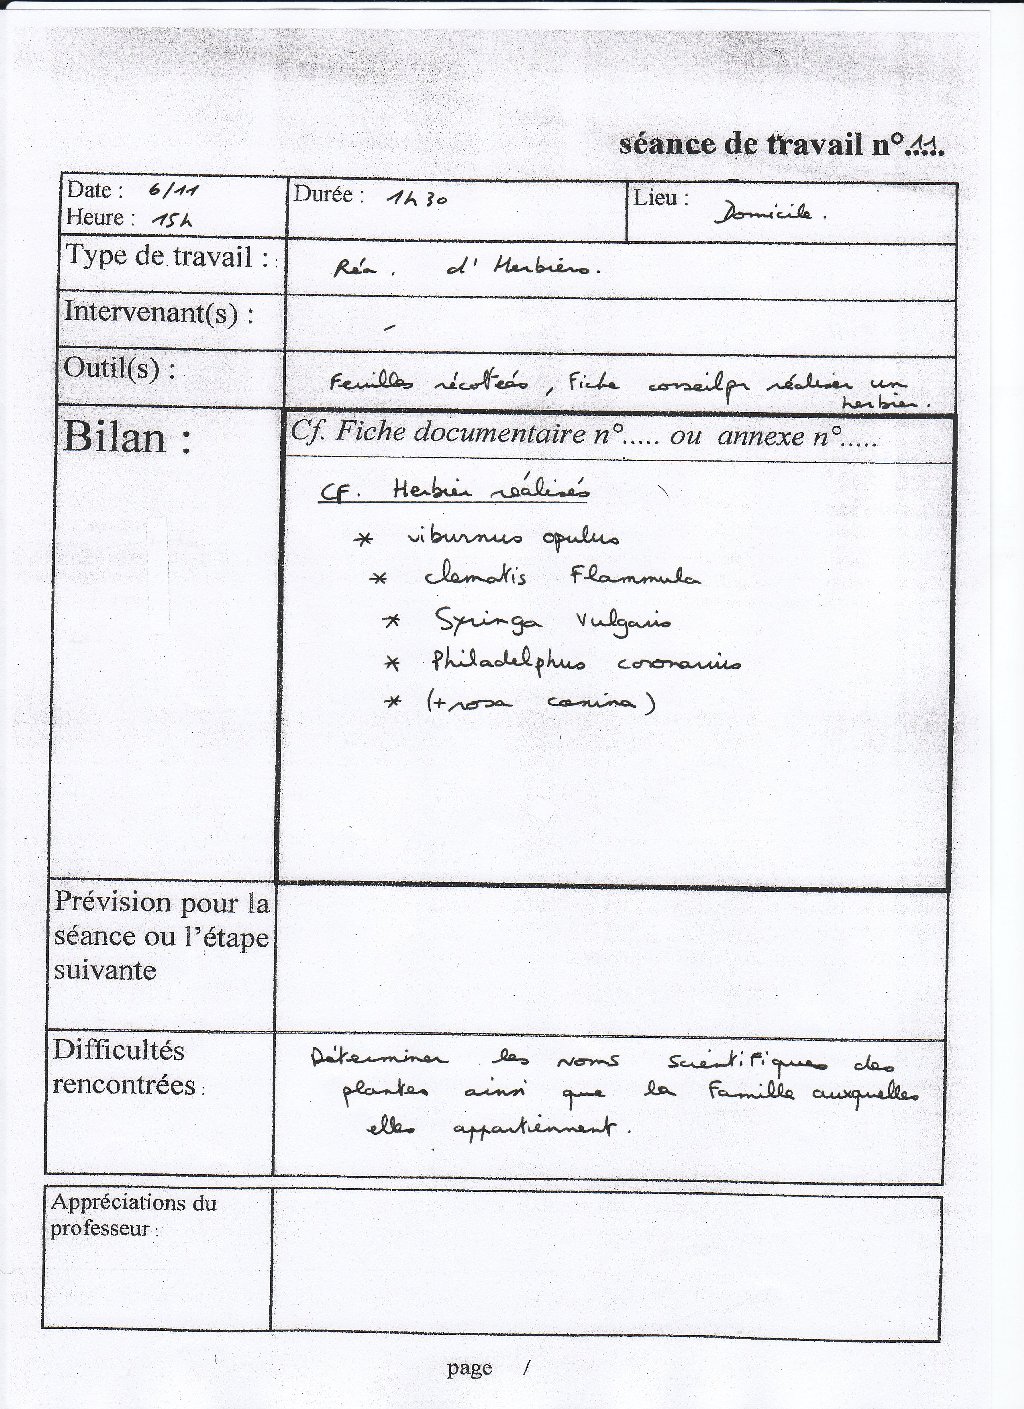 séance de travail n°.11..
Date : 6/11
Heure : 15h
Durée : 1h30
Lieu : Domicile.
Type de travail : Réa. d'Herbiers.
Intervenant(s) : -
Outil(s) : Feuilles récoltées, Fiche conseil pr réaliser un
herbier.
Bilan :
Cf. Fiche documentaire n°..... ou annexe n°.....
CF. Herbier réalisés
* viburnus opulus
* clematis Flammula
* Syringa Vulgaris
* Philadelphus coronarius
* (+ rosa canina)
Prévision pour la
séance ou l'étape
suivante
Difficultés
rencontrées :
Déterminer les noms scientifiques des
plantes ainsi que la Famille auxquelles
elles appartiennent.
Appréciations du
professeur :
page /